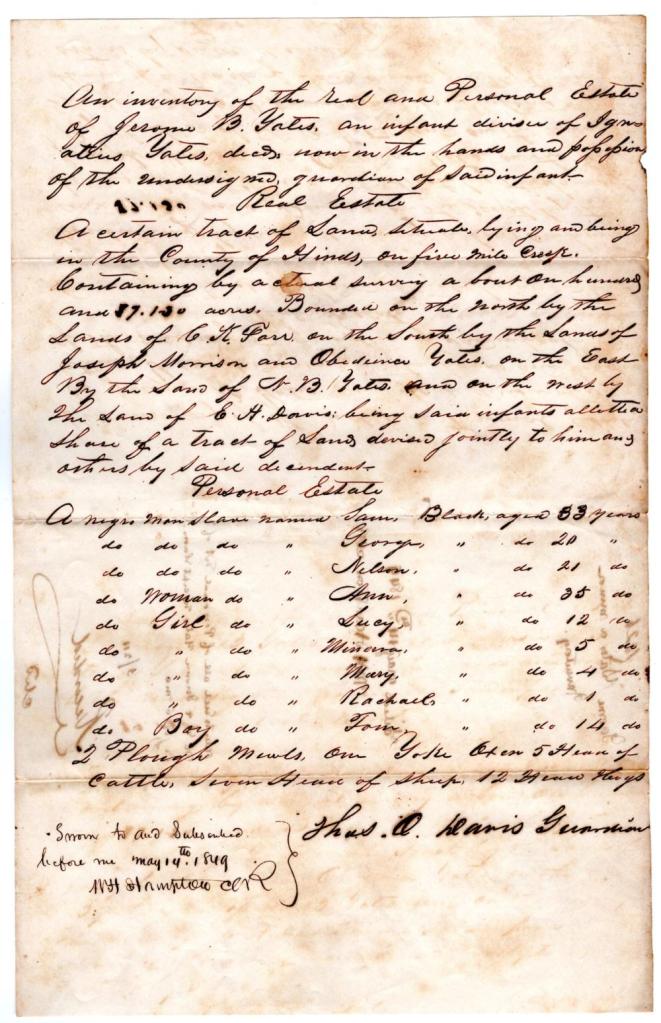 An inventory of the real and Personal Estate
of Jerome B. Yates, an infant divisee of Ign-
atius Yates, decd, now in the hands and possession
of the undersigned, guardian of said infant-
Real Estate
A certain tract of Land, situate, lying and being
in the County of Hinds, on five mile Creek.
Containing by actual survey a bout on hundred
and 87.130 acres. Bounded on the north by the
Lands of C. K. Farr on the South by the Lands of
Joseph Morrison and Obedience Yates. on the East
By the Land of N. B. Yates and on the west by
the Land of C. H. Davis; being said infants allotted
Share of a tract of Land, devised jointly to him and
others by said decendent-
Personal Estate
A negro man slave named Sam, Black, aged 33 years
do do do " George, " do 20 "
do do do " Nelson, " do 21 do
do Woman do " Ann, " do 35 do
do Girl do " Lucy, " do 12 do
do " do " Minerva, " do 5 do
do " do " Mary, " do 4 do
do " do " Rachael, " do 1 do
do Boy do " Tom, " do 14 do
2 Plough Mewls, One Yoke Oxen 5 Head of
Cattle, Seven Head of Sheep, 12 Head Hogs
Thos. O. Davis Guardian
Sworn to and Subscribed
before me may 14th. 1849
WH Hampton Clk